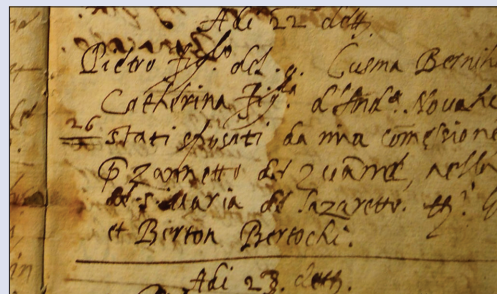 Adi 22 dett.
Pietro fig.º del q. Cusma Bernin
Catherina fig.ª d'And.ª Novahe
26
stati sposati da mia comessione
P. Zannetto de, nella
de S. Maria del Lazaretto. tt.i
et Berton Bertochi.
Adi 28. dett.